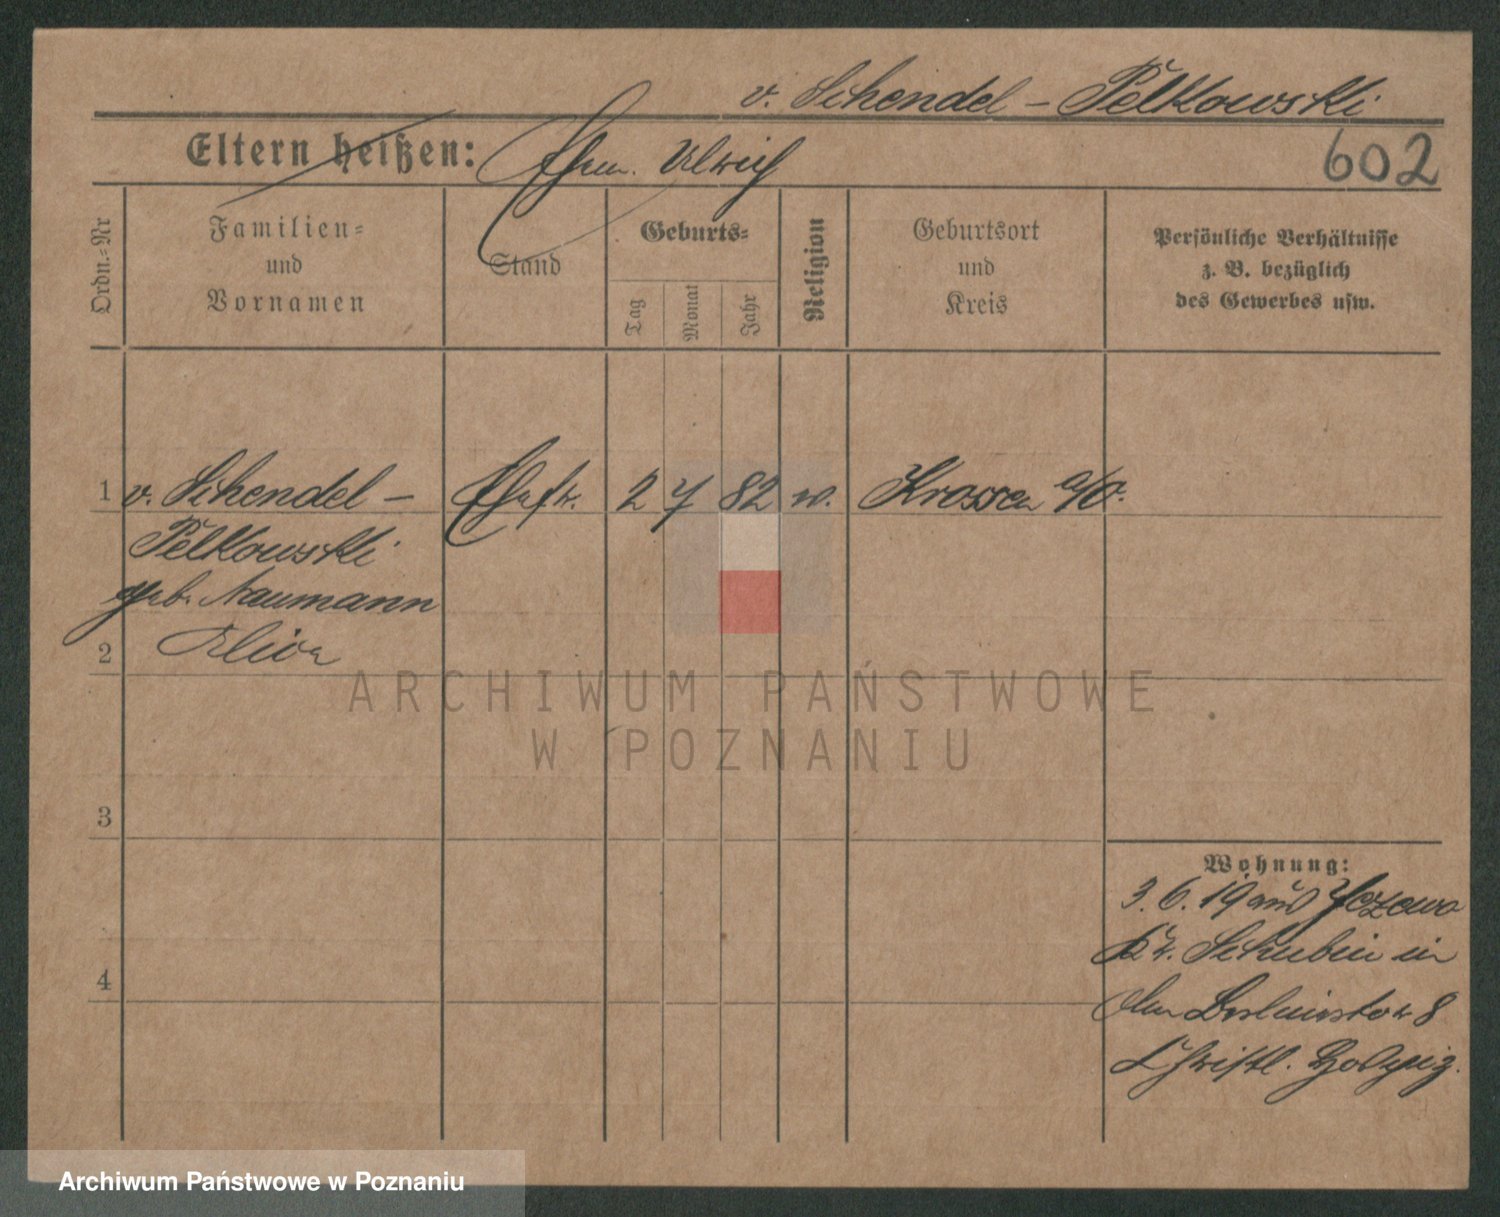 v. Schendel - Pelkowski
Eltern heißen: Ehem. Ulrich
602
Ordn.=Nr
Familien=
und
Vornamen
Stand
Geburts=
Tag
Monat
Jahr
Religion
Geburtsort
und
Kreis
Persönliche Verhältnisse
z. B. bezüglich
des Gewerbes usw.
1 v. Schendel - Ehefr. 2 7 82 Krossen a/O.
Pelkowski
geb. Naumann
2
ARCHIWUM PAŃSTWOWE
W POZNANIU
3
Wohnung:
3.6.19 aus
Kr. Schubin in
4
8
Christl. Hospiz.
Archiwum Państwowe w Poznaniu